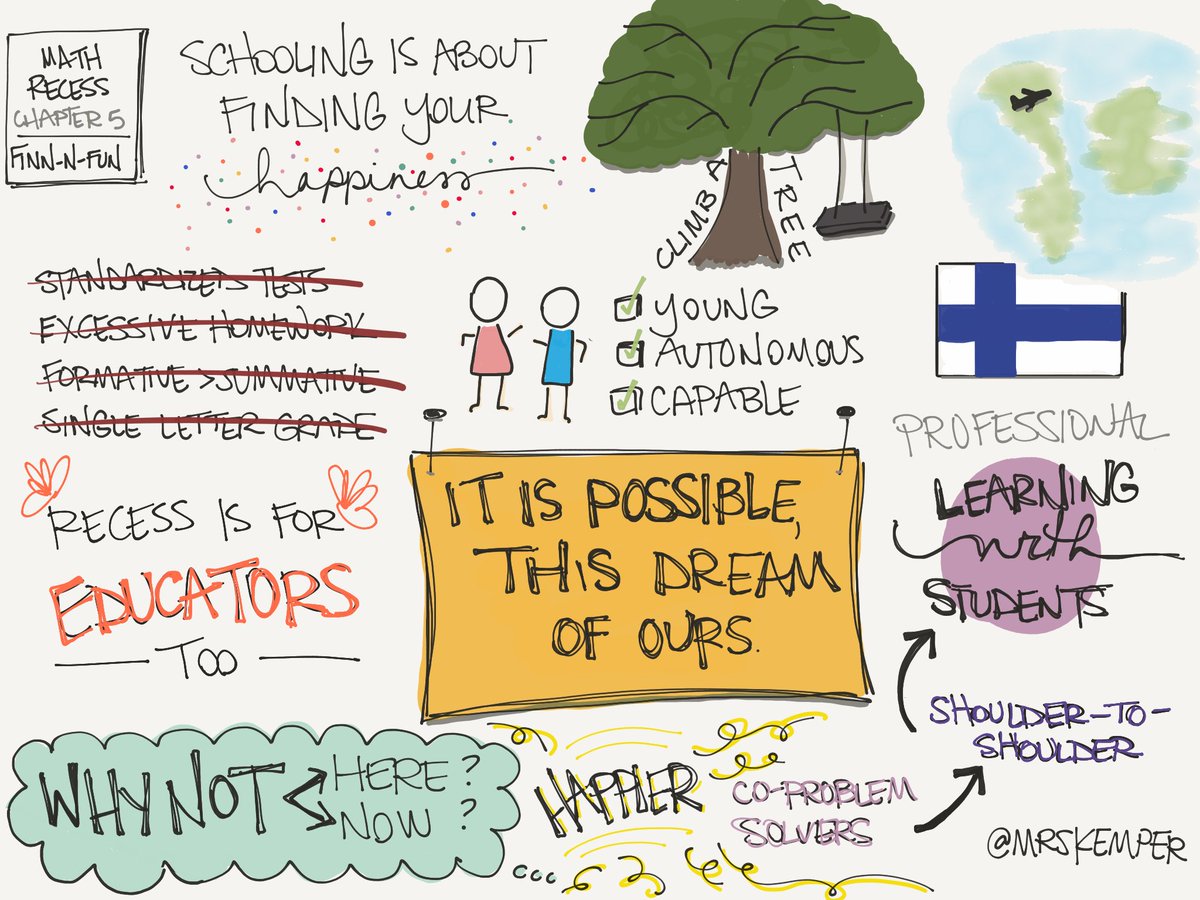 MATH
RECESS
CHAPTER 5
FINN-N-FUN
SCHOOLING IS ABOUT
FINDING YOUR
happiness
CLIMB A
TREE
STANDARDIZED TESTS
EXCESSIVE HOMEWORK
FORMATIVE > SUMMATIVE
SINGLE LETTER GRADE
YOUNG
AUTONOMOUS
CAPABLE
RECESS IS FOR
EDUCATORS
TOO
IT IS POSSIBLE,
THIS DREAM
OF OURS.
PROFESSIONAL
LEARNING
with
STUDENTS
SHOULDER-TO-
SHOULDER
WHY NOT < HERE?
NOW?
HAPPIER
CO-PROBLEM
SOLVERS
...
@MRSKEMPER